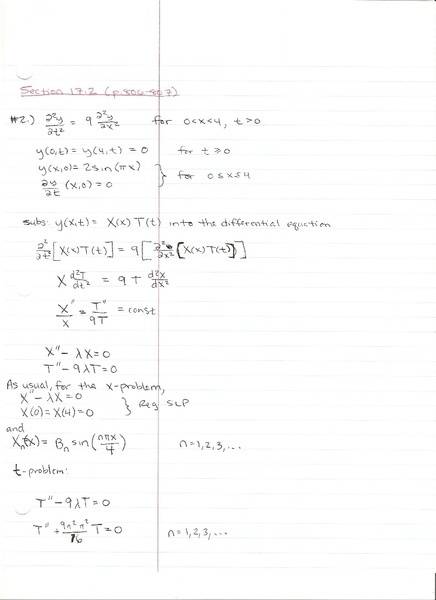 Section 17.2 (p.806-807)
#2.) ∂²y/∂t² = 9 ∂²y/∂x² for 0<x<4, t>0
y(0,t) = y(4,t) = 0 for t≥0
y(x,0) = 2sin(πx)
∂y/∂t (x,0) = 0 } for 0≤x≤4
subs: y(x,t) = X(x)T(t) into the differential equation
∂²/∂t² [X(x)T(t)] = 9[∂²/∂x² [X(x)T(t)]]
X d²T/dt² = 9T d²X/dx²
X''/X = T''/9T = const
X'' - λX = 0
T'' - 9λT = 0
As usual, for the x-problem,
X'' - λX = 0
X(0) = X(4) = 0 } Reg SLP
and
Xₙ(x) = Bₙ sin(nπx/4) n=1,2,3,...
t-problem:
T'' - 9λT = 0
T'' + 9n²π²/16 T = 0 n=1,2,3,...